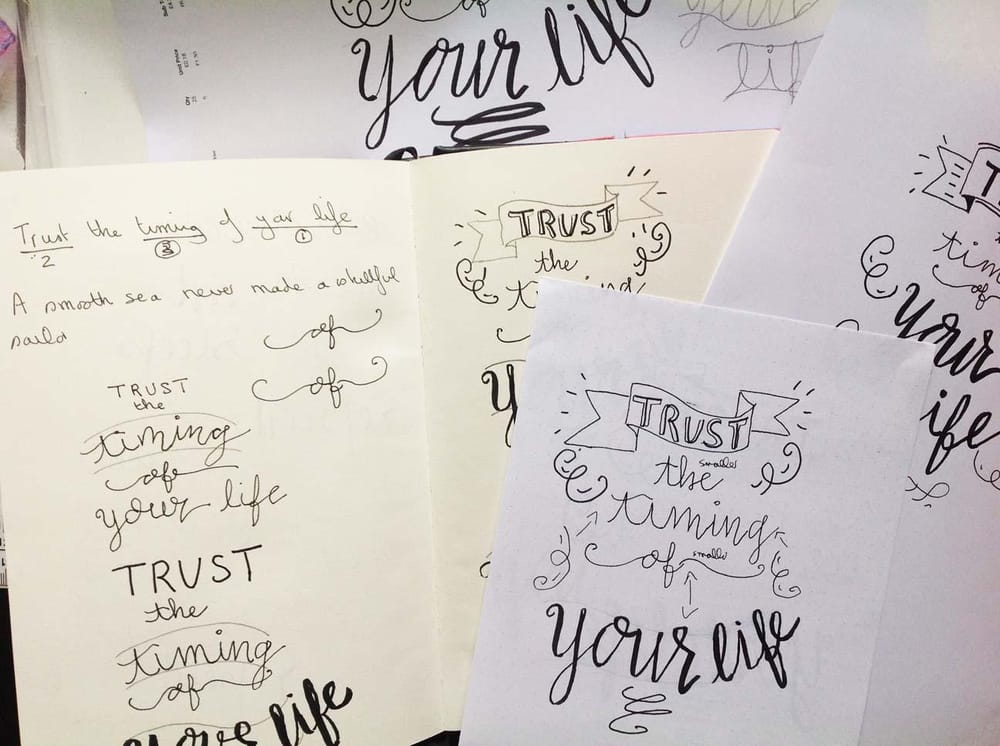 Unit Price
Qty
of
Your life
lif
Trust the timing of your life
2 3 1
A smooth sea never made a skillful
sailor
of
of
TRUST
the
timing
of
your life
TRUST
the
timing
of
your life
TRUST
the
timing
Y
TRUST
the smaller
timing
of smaller
Your life
T
tim
of
Your
ife